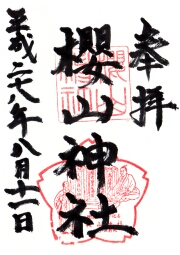 奉拝
櫻山神社
平成二十八年八月十一日